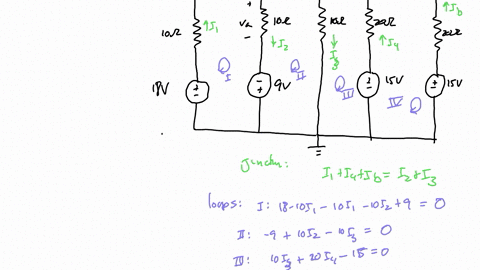 +
10Ω ↑I₁ Va 10Ω 10Ω 20Ω ↑I_b
- ↓I₂ ↓I₃ ↑I₄ 20Ω
I II III IV
18V 9V 15V 15V
Junction: I₁+I₄+I_b = I₂+I₃
loops: I: 18-10I₁-10I₁-10I₂+9=0
II: -9+10I₂-10I₃=0
III: 10I₃+20I₄-15=0